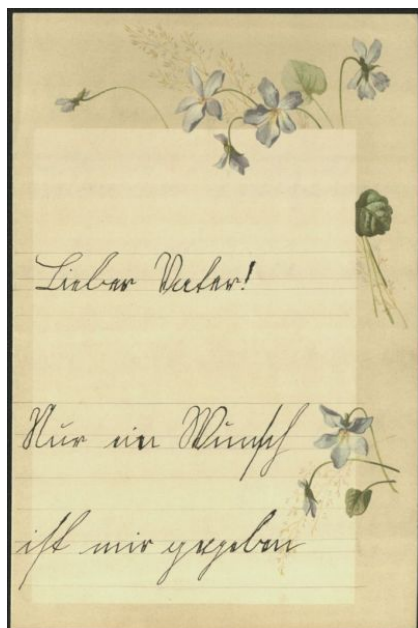 Lieber Vater!
Nur ein Wunsch
ist mir gegeben